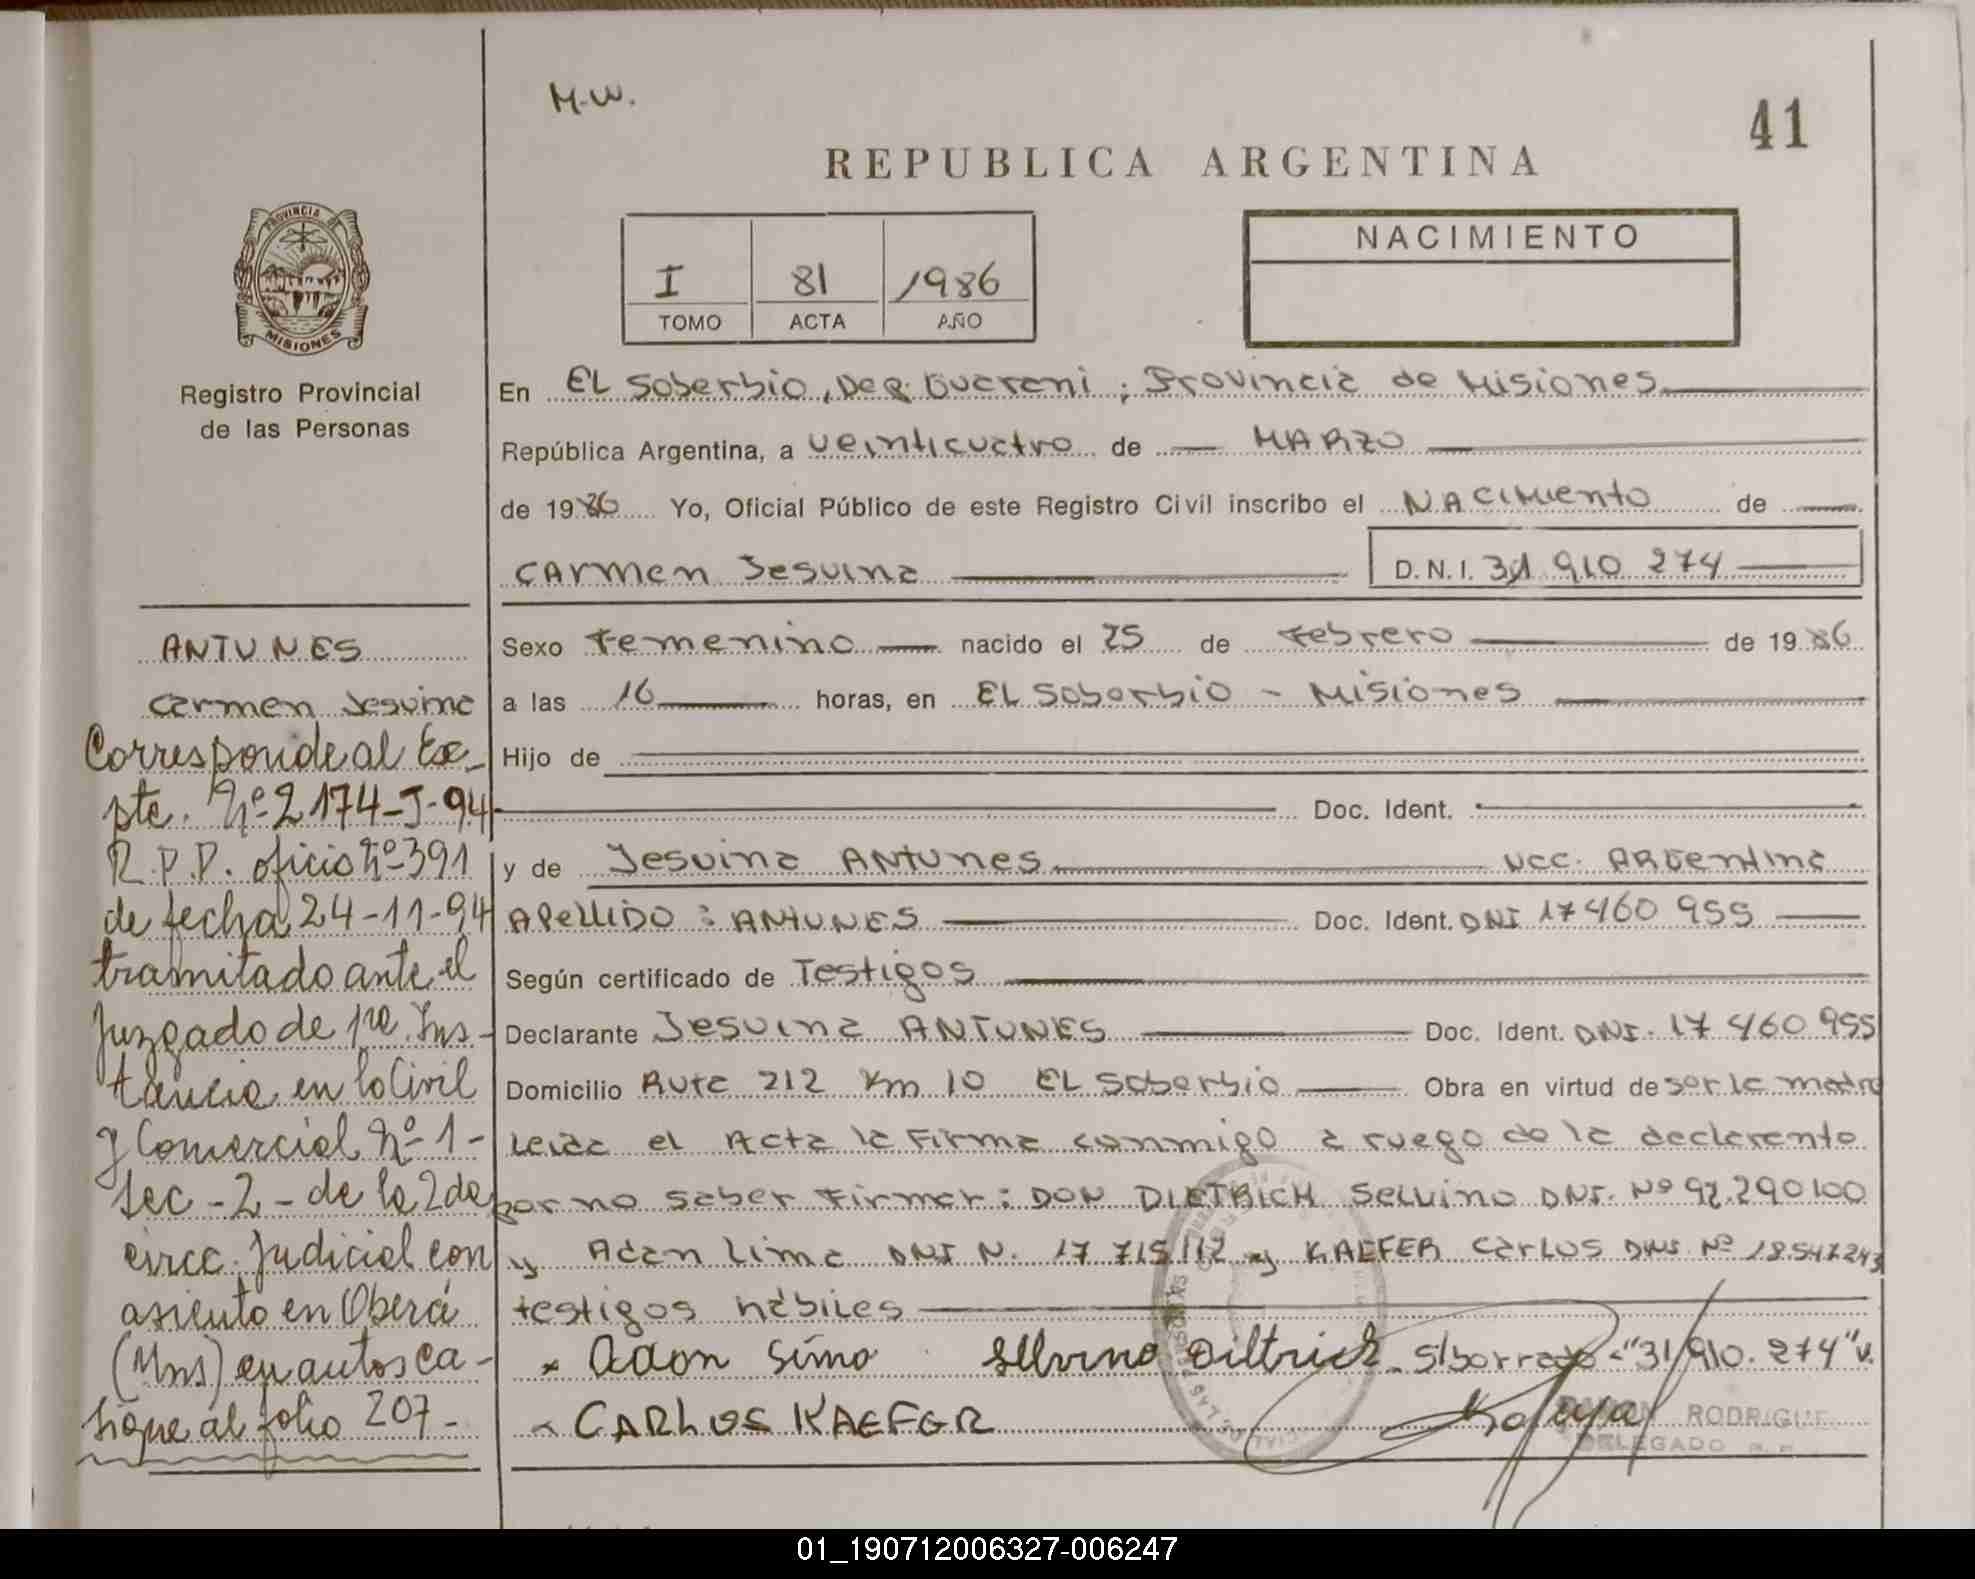 M.W.
41
REPUBLICA ARGENTINA
PROVINCIA DE
MISIONES
Registro Provincial
de las Personas
I 81 1986
TOMO ACTA AÑO
NACIMIENTO
En El Soberbio, Dep. Guarani; Provincia de Misiones
República Argentina, a veinticuatro de MARZO
de 1986 Yo, Oficial Público de este Registro Civil inscribo el NACimiento de
CArmen Jesuina D.N.I. 31 910 274
Sexo Femenino nacido el 25 de Febrero de 1986
a las 16 horas, en El Soberbio - Misiones
Hijo de
Doc. Ident.
y de Jesuina Antunes nac. Argentina
Apellido: ANTUNES Doc. Ident. DNI 17 460 955
Según certificado de Testigos
Declarante Jesuina ANTUNES Doc. Ident. DNI. 17 460 955
Domicilio Ruta 212 Km 10 El Soberbio Obra en virtud de ser la madre
Leida el Acta la firma conmigo a ruego de la declarante
por no saber firmar: DON DIETRICH Selvino DNI. Nº 92.290100
y Adan Lima DNI N. 17 715 112 y KAEFER Carlos DNI Nº 18.547243
testigos hábiles
Adon Simo Selvino Diltrick S/borrado "31.910.274" v.
CARLOS KAEFER
RODRIGUE
DELEGADO
ANTUNES
Carmen Jesuina
Corresponde al Ex-
pte. Nº 2174-J-94
R.P.P. oficio Nº 391
de fecha 24-11-94
tramitado ante el
Juzgado de 1ra. Ins-
tancia en lo Civil
y Comercial Nº 1-
Sec-2- de la 2da
circ. Judicial con
asiento en Oberá
(Mns) en autos ca-
Sigue al folio 207-
01_190712006327-006247